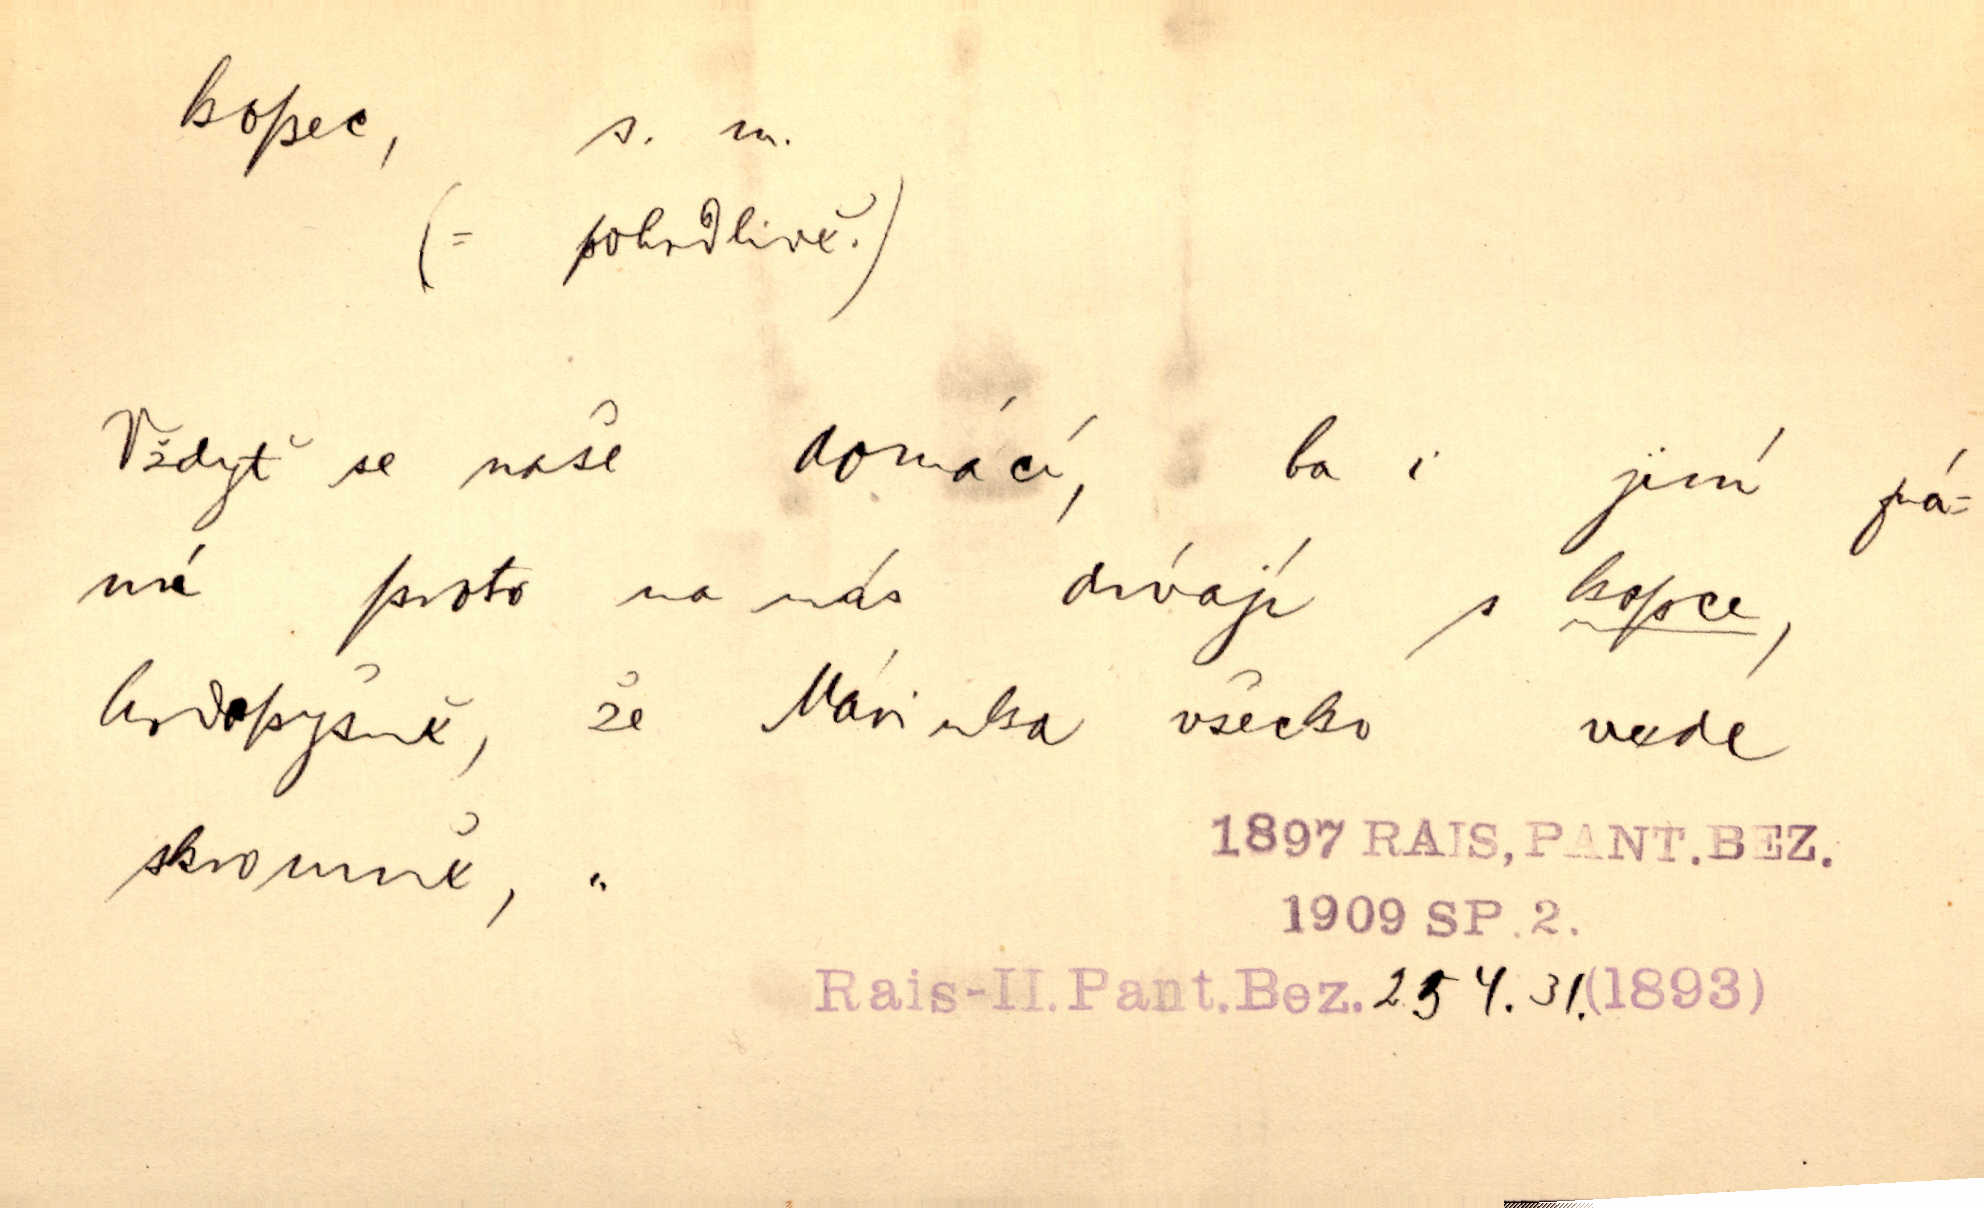 kopec, s. m.
(= pohrdlivě.)
Vždyť se naše domácí, ba i jiní pá-
ni proto na nás dívají s kopce,
hrdopyšně, že Márinka všecko vede
skromně, "
1897 RAIS, PANT. BEZ.
1909 SP. 2.
Rais-II. Pant. Bez. 254. 31. (1893)